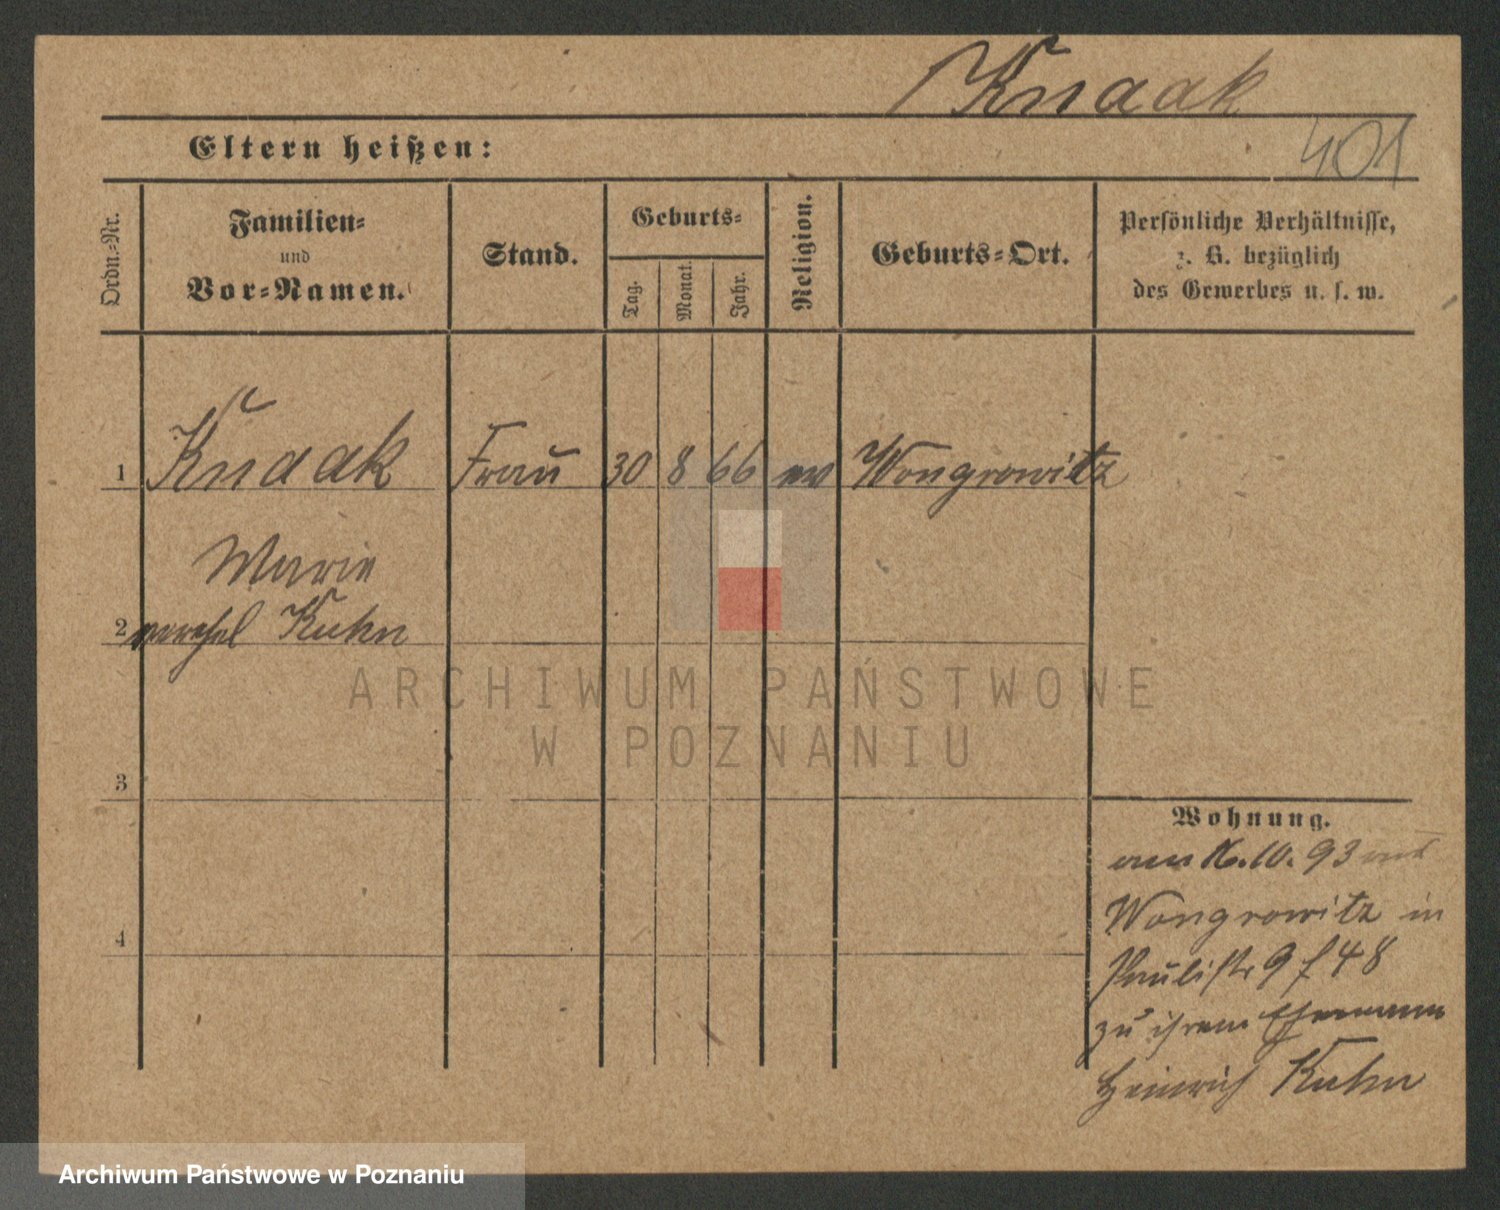 Knaak
Eltern heißen:
401
Ordn.-Nr.
Familien-
und
Vor-Namen.
Stand.
Geburts-
Tag.
Monat.
Jahr.
Religion.
Geburts-Ort.
Persönliche Verhältnisse,
z. B. bezüglich
des Gewerbes u. s. w.
1 Knaak Frau 30 8 66 ev Wongrowitz
Marie
2 verehel Kuhn
ARCHIWUM PAŃSTWOWE
W POZNANIU
3
Wohnung.
am 16.10.93 aus
4
Wongrowitz in
Paulistr 9 f 48
zu ihrem Ehemann
Heinrich Kuhn
Archiwum Państwowe w Poznaniu